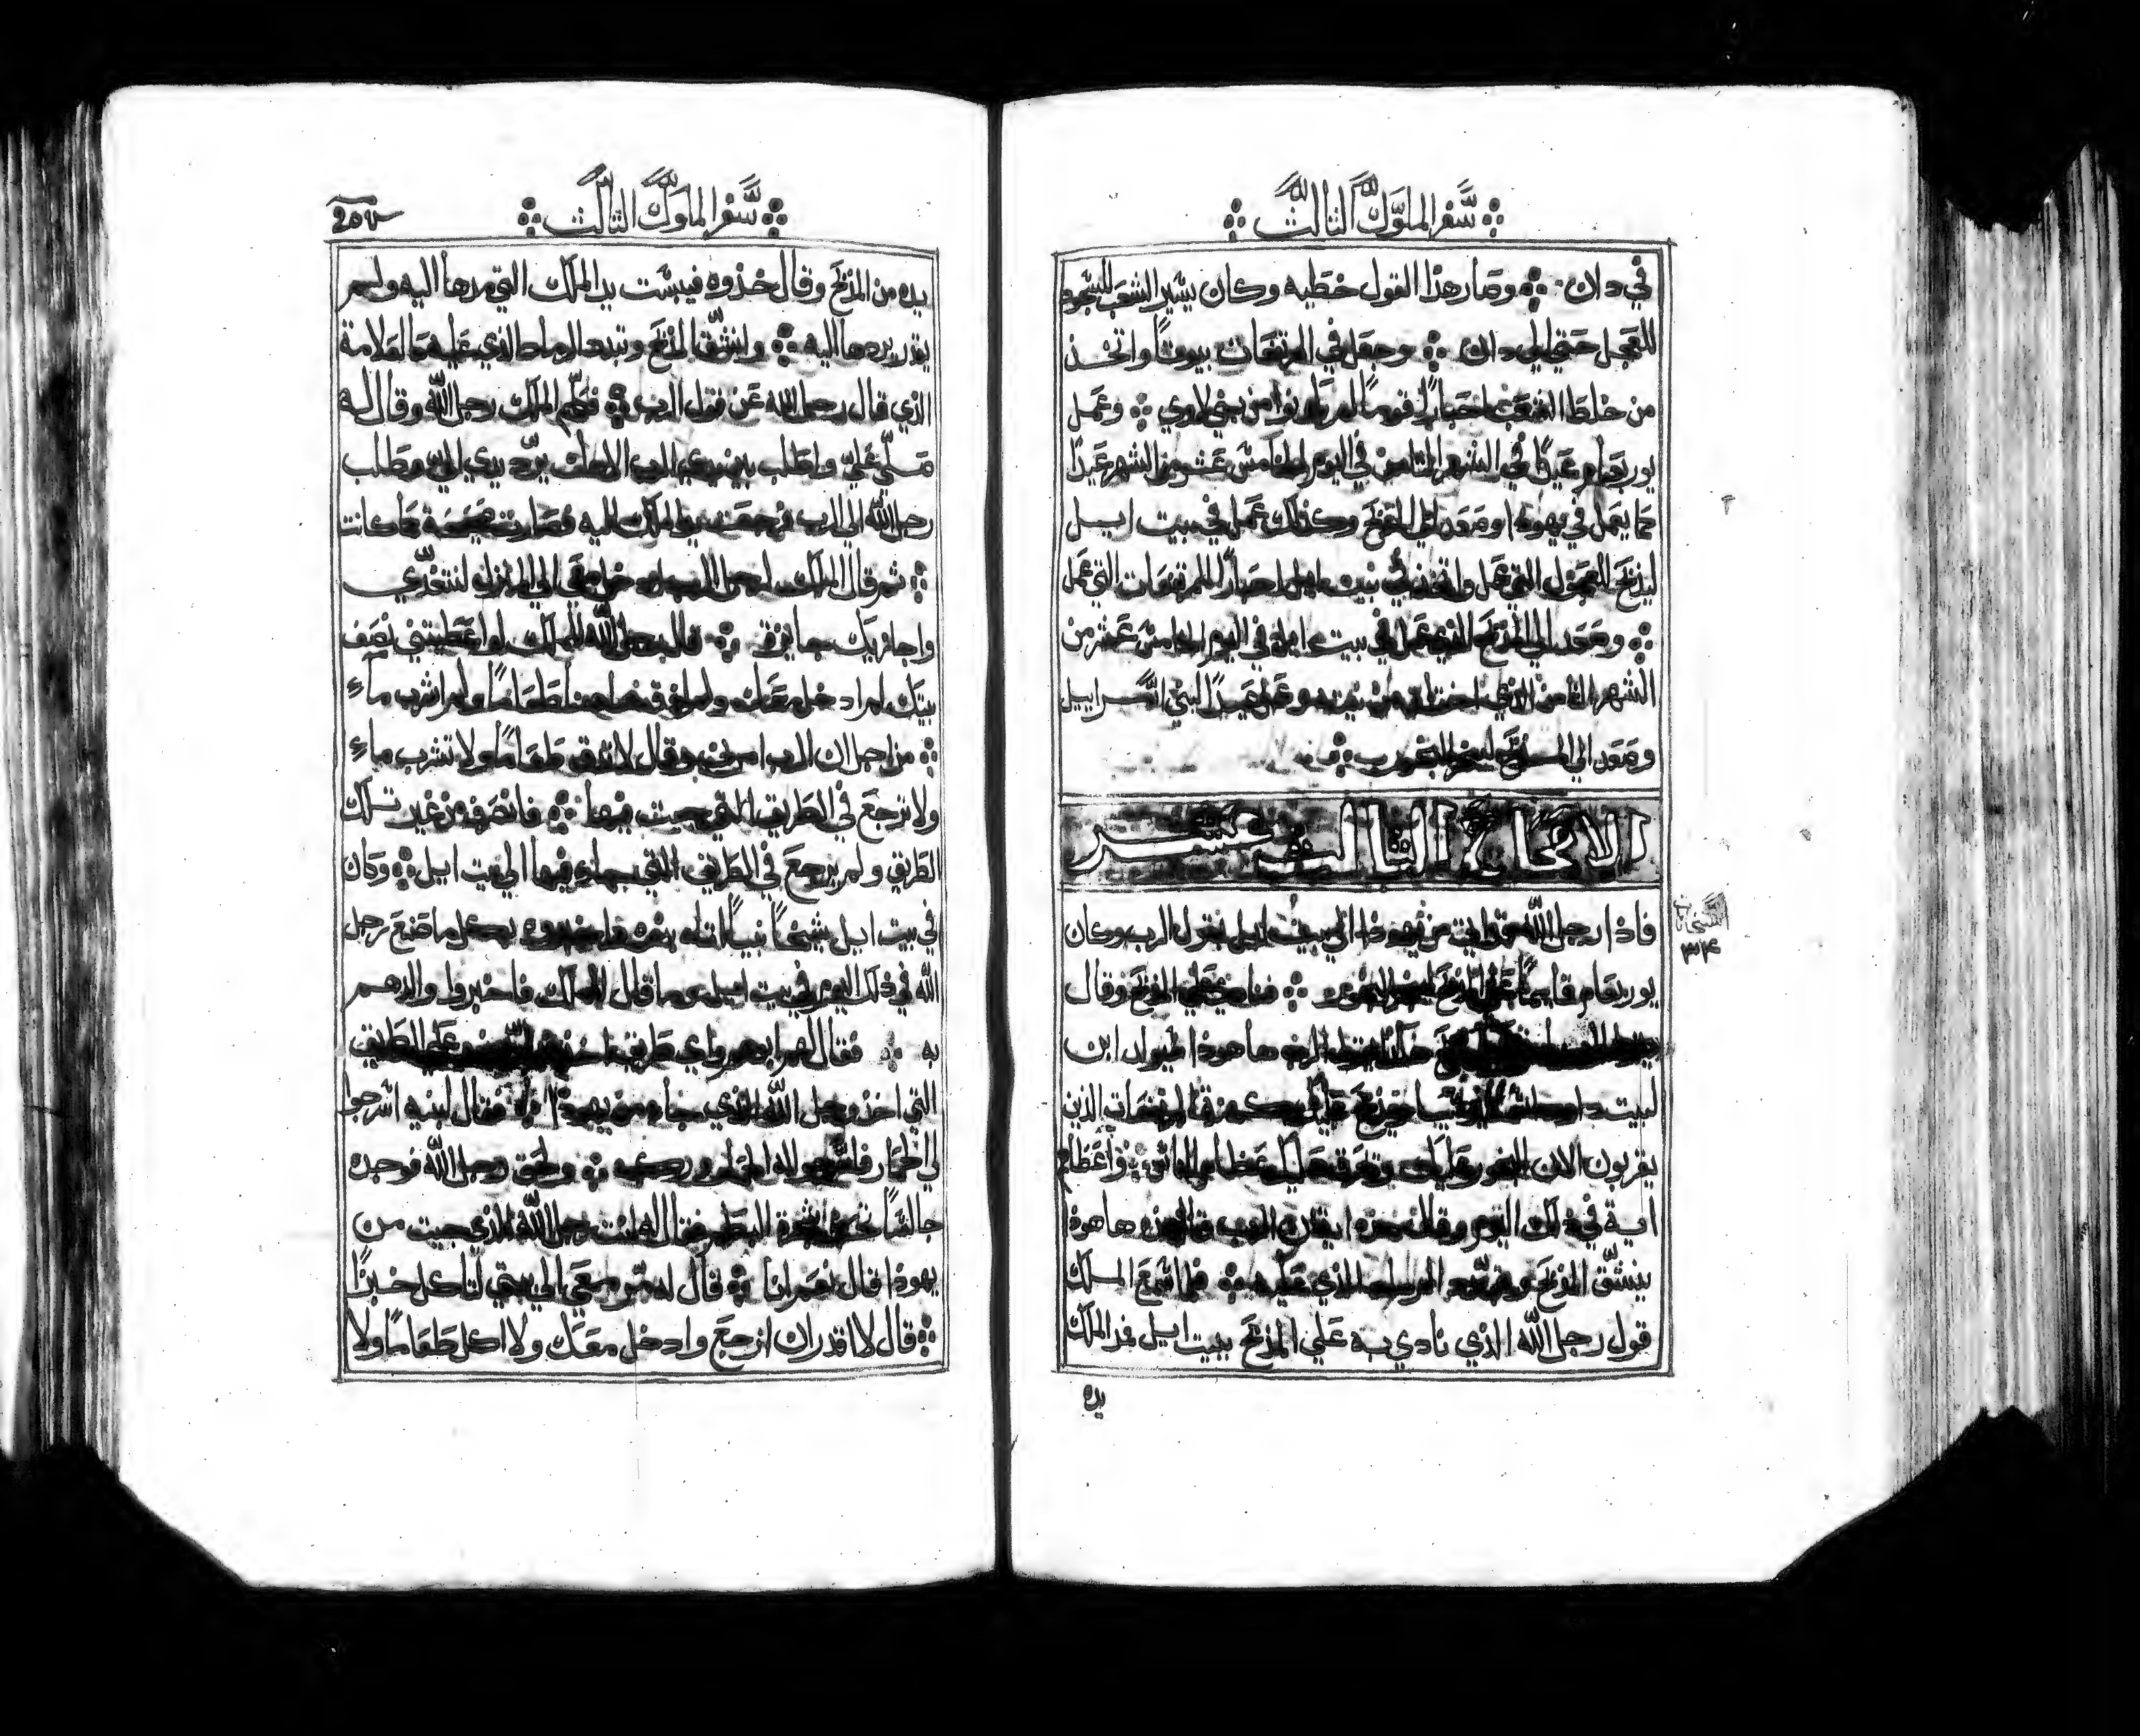 سفر الملوك الثالث
في دان وصار هذا القول خطيه وكان يسير الشعب للسجود
للعجل حتي الي دان وجعل في المرتفعات بيوتاً واتخذ
من خلط الشعب احباراً قوماً لم يكونوا من بني لاوي وعمل
يوربعام عيداً في الشهر الثامن في اليوم الخامس عشر من الشهر عيداً
كما يعمل في يهوذا وصعد الي المذبح وكذلك عمل في بيت ايل
ليذبح للعجول التي عمل واتخذ في بيت ايل احباراً للمرتفعات التي عمل
وصعد الي المذبح الذي عمل في بيت ايل في اليوم الخامس عشر من
الشهر الثامن الذي من وعمل عيداً لبني اسراييل
وصعد الي المذبح ليبخر البخور
الاصحاح الثالث عشر
فاذا رجل الله من يهوذا الي بيت ايل بقول الرب وكان
يوربعام قايماً علي المذبح البخور علي المذبح وقال
هكذا يقول الرب ها هوذا يولد ابن
لبيت داود يوشيا ويذبح عليك كهنة المرتفعات الذين
يقربون الان البخور عليك ويحرق عليك عظام الناس واعطا
اية في ذلك اليوم وقال هذه اية ان الرب ها هوذا
ينشق المذبح الرماد الذي عليه فلما سمع الملك
قول رجل الله الذي نادي به علي المذبح ببيت ايل فمد الملك
يده
سفر الملوك الثالث
يده من المذبح وقال خذوه فيبست يد الملك التي مدها اليه ولم
يقدر يردها اليه وانشق المذبح وتبدد الرماد الذي عليه كالعلامة
الذي قال رجل الله عن قول الرب فكلم الملك رجل الله وقال له
صلي علي واطلب بين يدي الرب الاهك يرد يدي الي وطلب
رجل الله الي الرب فرجعت يد الملك اليه فصارت صحيحة كما كانت
ثم قال الملك لرجل الرب معي الي المنزل لنتغدي
واجازيك جايزة قال رجل الله للملك لو اعطيتني نصف
بيتك لم ادخل معك ولم اذق هاهنا طعاماً ولم اشرب ماء
من اجل ان الرب امرني وقال لا تذق طعاماً ولا تشرب ماء
ولا ترجع في الطريق التي جيت فيها فانصرف من غير تلك
الطريق ولم يرجع في الطريق التي جاء فيها الي بيت ايل وكان
في بيت ايل شيخاً نبياً اتاه بنوه فاخبروه بكل ما صنع رجل
الله في ذلك اليوم في بيت ايل وما قال للملك فاخبروا والدهم
به فقال لهم ابوهم اي طريق اخذ علي الطريق
التي اخذ رجل الله الذي جاء من يهوذا فقال لبنيه اسرجوا
لي الحمار فاسرجوا له الحمار وركب ولحق رجل الله فوجده
جالساً تحت شجرة البطم فقال له انت رجل الله الذي جيت من
يهوذا قال نعم انا قال له سر معي الي بيتي لتاكل خبزاً
قال لا اقدر ان ارجع وادخل معك ولا اكل طعاماً ولا